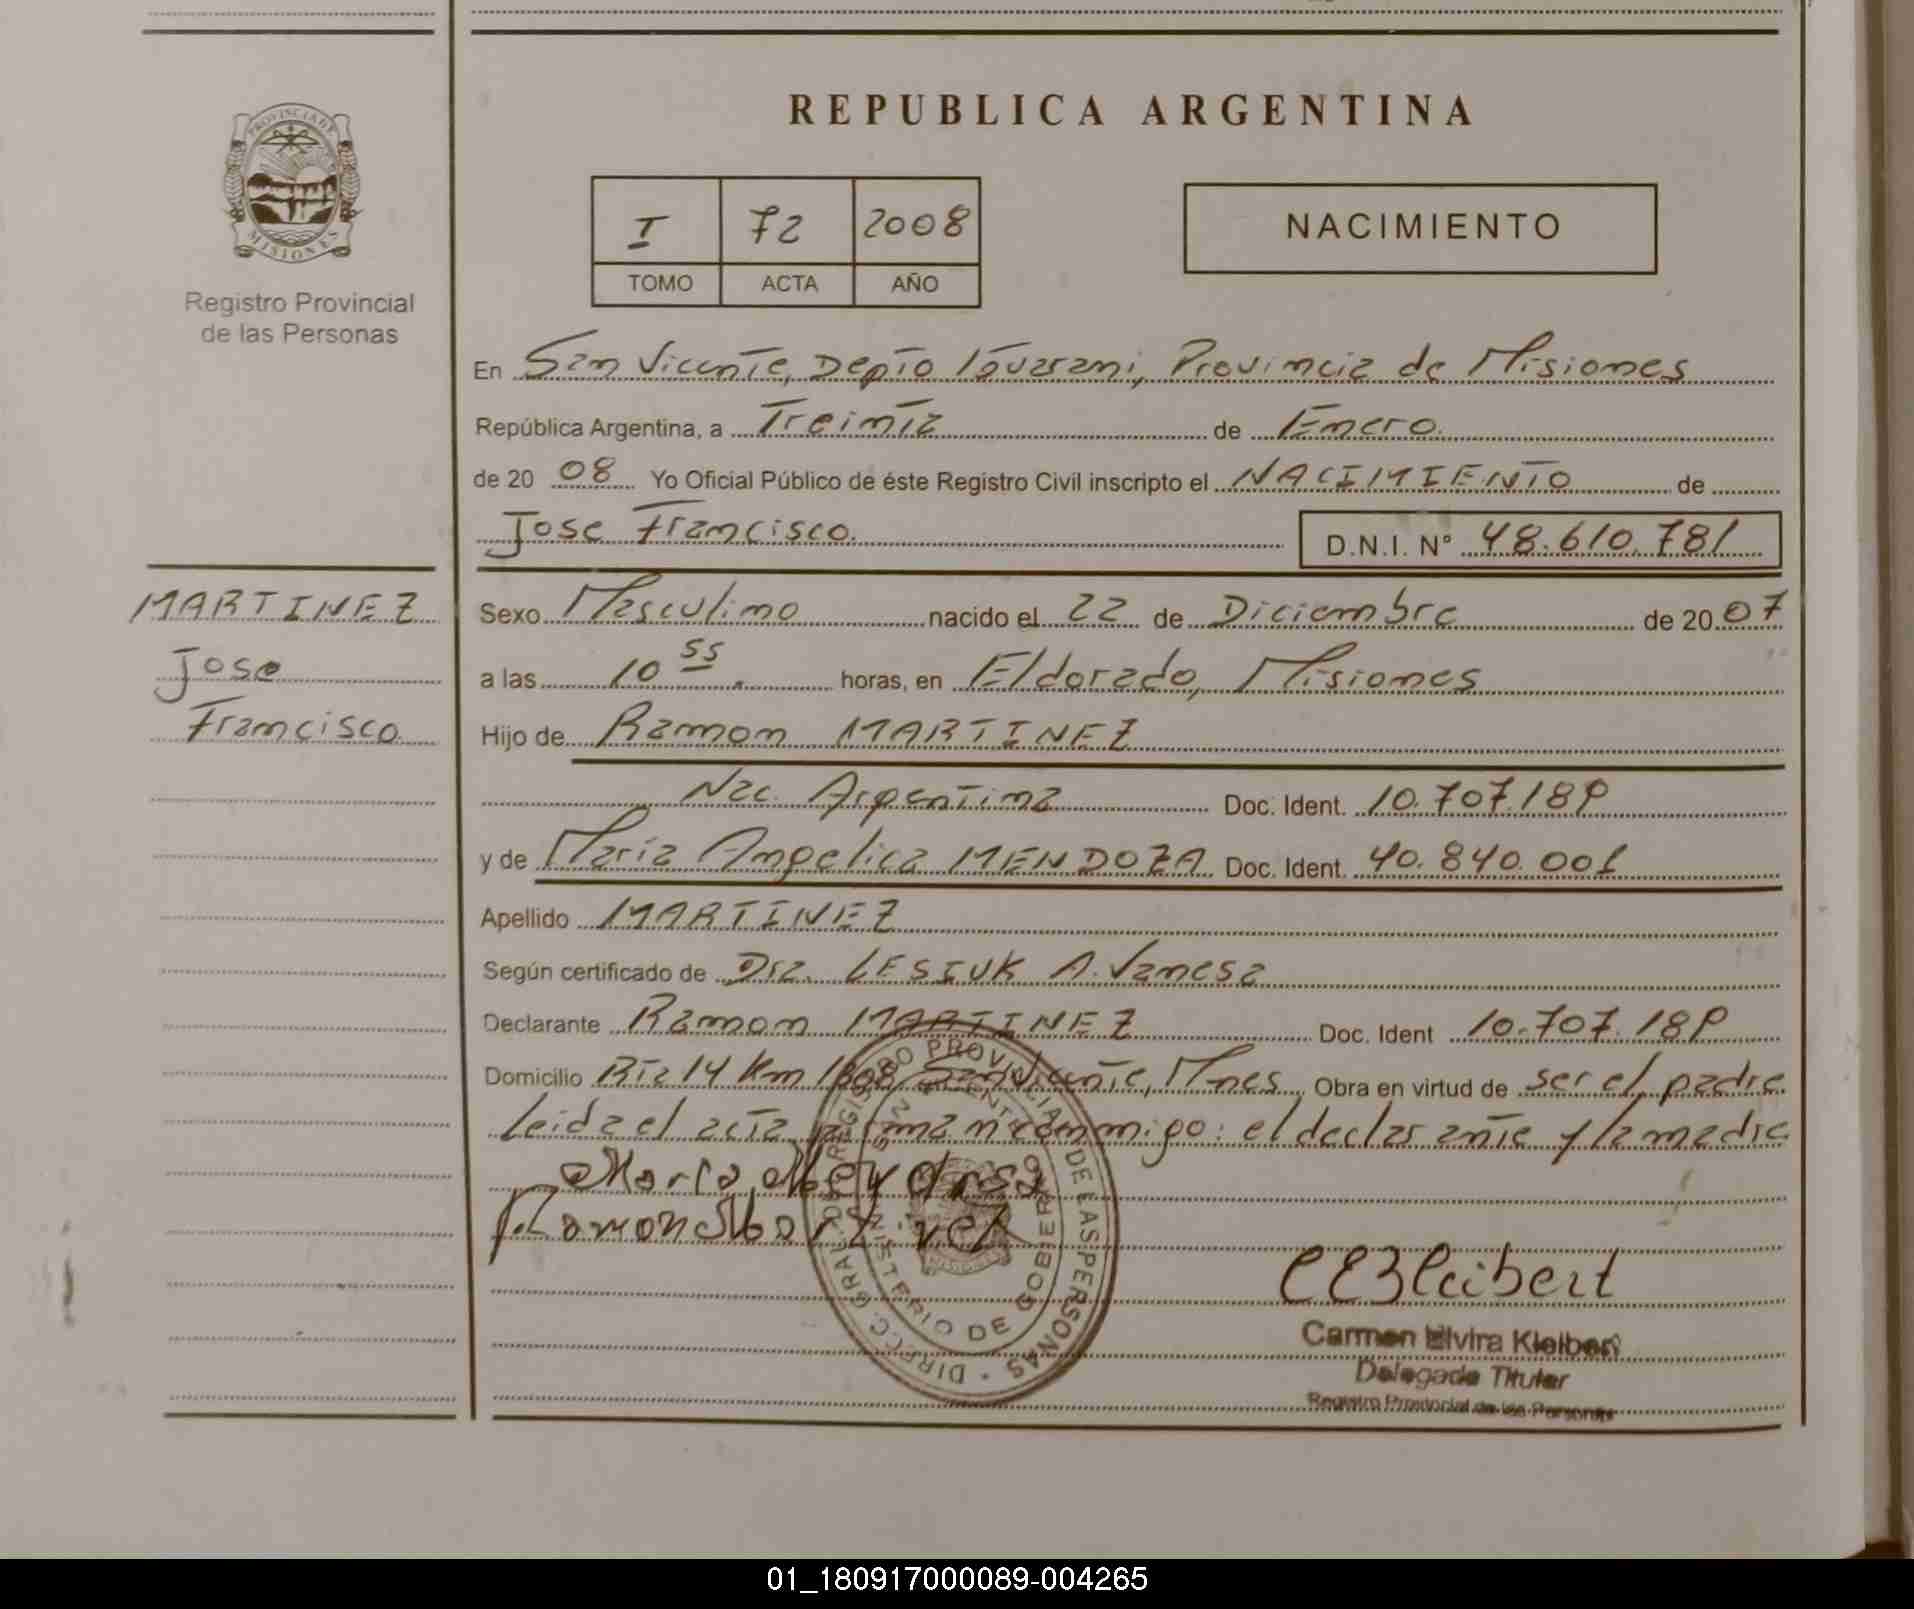 REPUBLICA ARGENTINA
PROVINCIA DE
MISIONES
Registro Provincial
de las Personas
I 72 2008
TOMO ACTA AÑO
NACIMIENTO
En San Vicente, Depto Guarani, Provincia de Misiones
República Argentina, a Treinta de Enero.
de 20 08 Yo Oficial Público de éste Registro Civil inscripto el NACIMIENTO de
Jose Francisco. D.N.I. Nº 48.610.781
MARTINEZ
Jose
Francisco
Sexo Masculino nacido el 22 de Diciembre de 20 07
a las 10 55 . horas, en Eldorado, Misiones
Hijo de Ramon MARTINEZ
Nac. Argentina Doc. Ident. 10.707.189
y de Maria Angelica MENDOZA Doc. Ident. 40.840.001
Apellido MARTINEZ
Según certificado de Dra. LESIUK A. Vanesa
Declarante Ramon MARTINEZ Doc. Ident 10.707.189
Domicilio Rta 14 Km San Vicente, Mnes Obra en virtud de ser el padre
Leida el acta, firman conmigo: el declarante y la madre
Maria
Ramon
DIRECC. GRAL. DEL REGISTRO PROVINCIAL DE LAS PERSONAS
MINISTERIO DE GOBIERNO
Carmen Elvira Kleibert
Delegada Titular
Registro Provincial de las Personas
01_180917000089-004265